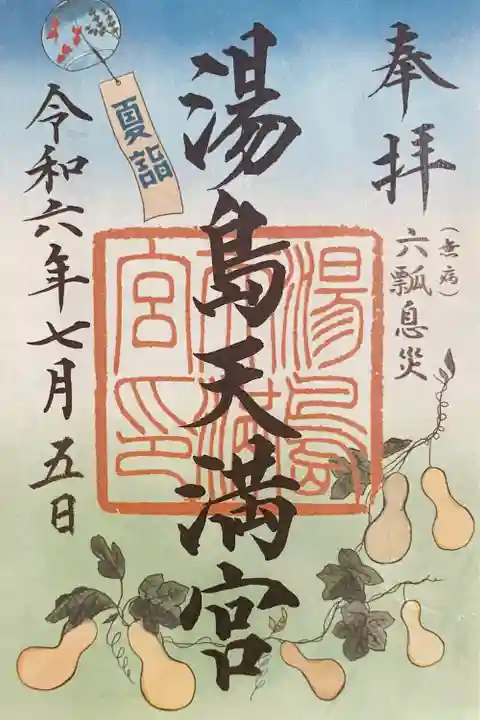 奉拝
(無病)
六瓢息災
湯島天満宮
湯島天満宮印
夏詣
令和六年七月五日